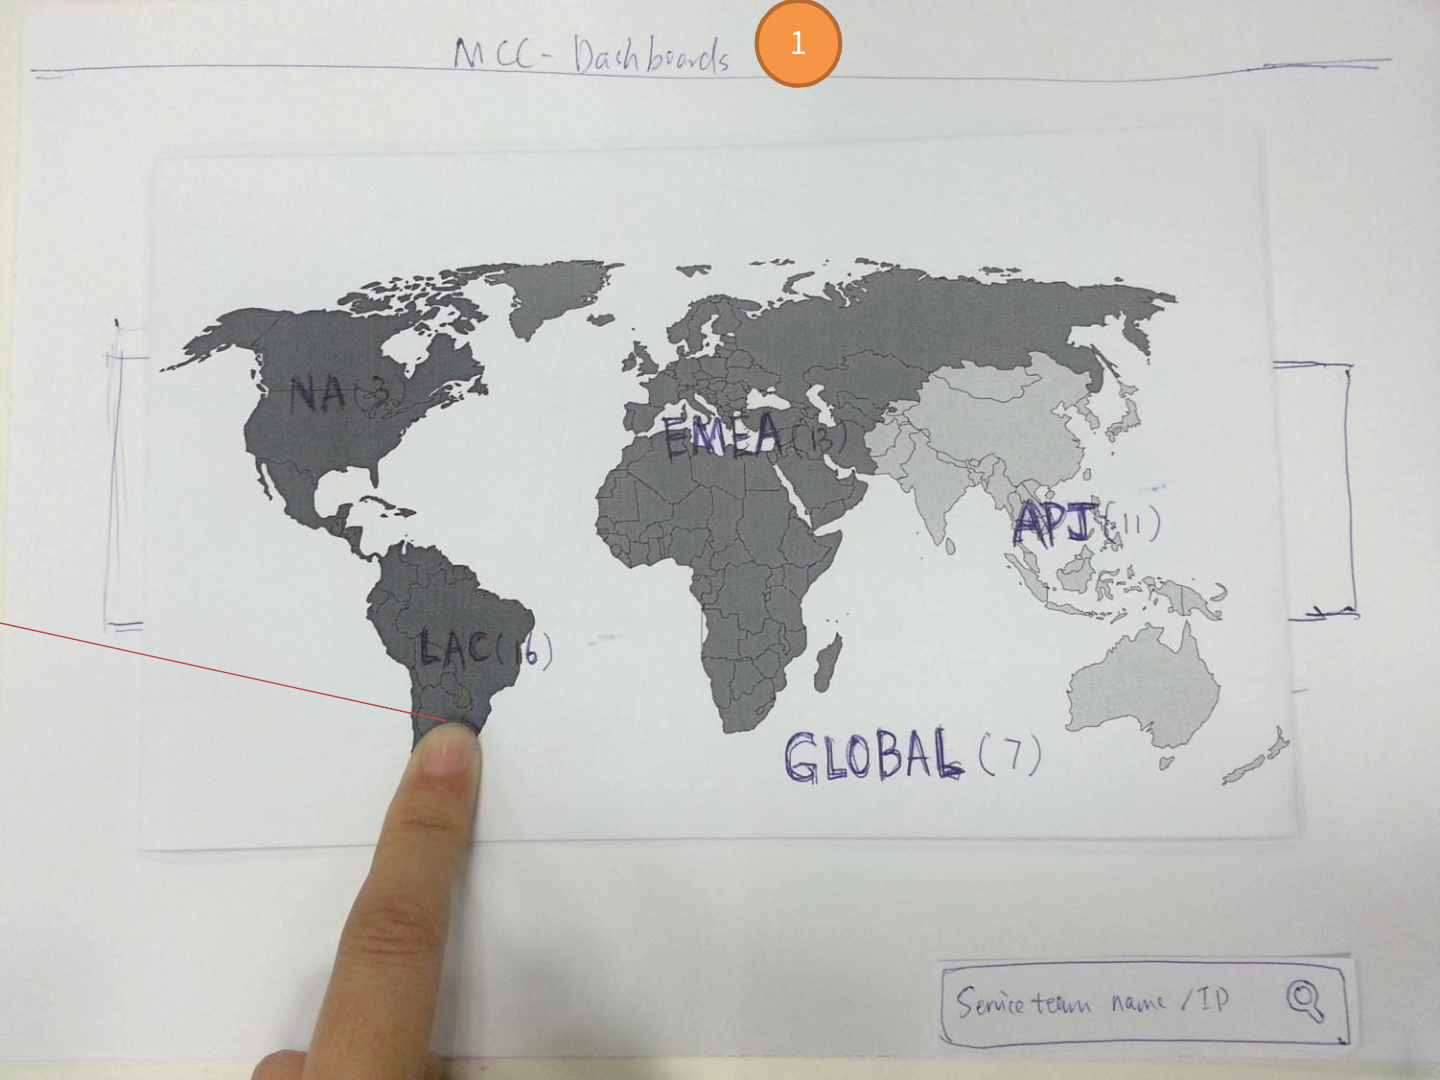 MCC - Dashboards
1
NA (3)
EMEA (13)
APJ (11)
LAC (16)
GLOBAL (7)
Service team name / ID